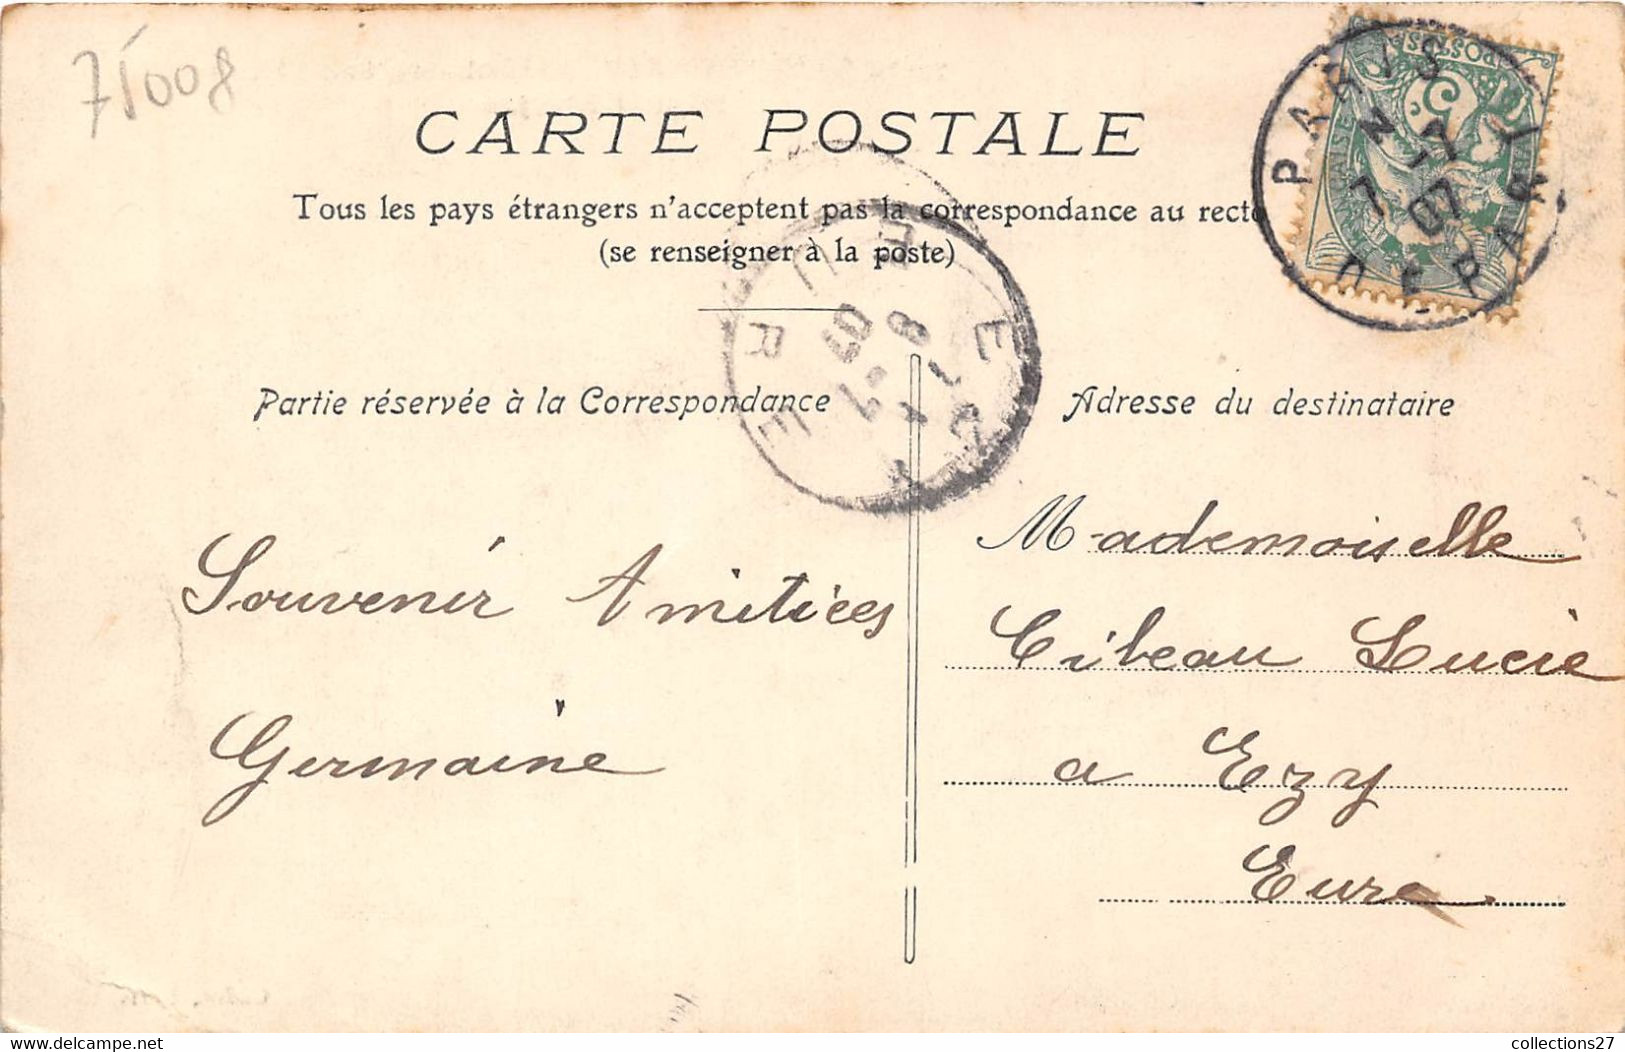 75008
CARTE POSTALE
Tous les pays étrangers n'acceptent pas la correspondance au recto
(se renseigner à la poste)
PARIS
7 -7
07
DEPART
EURE
8 -7
07
Partie réservée à la Correspondance
Adresse du destinataire
Souvenir Amitiées
Germaine
Mademoiselle
Cibeau Lucie
a Ezy
Eure
collections27